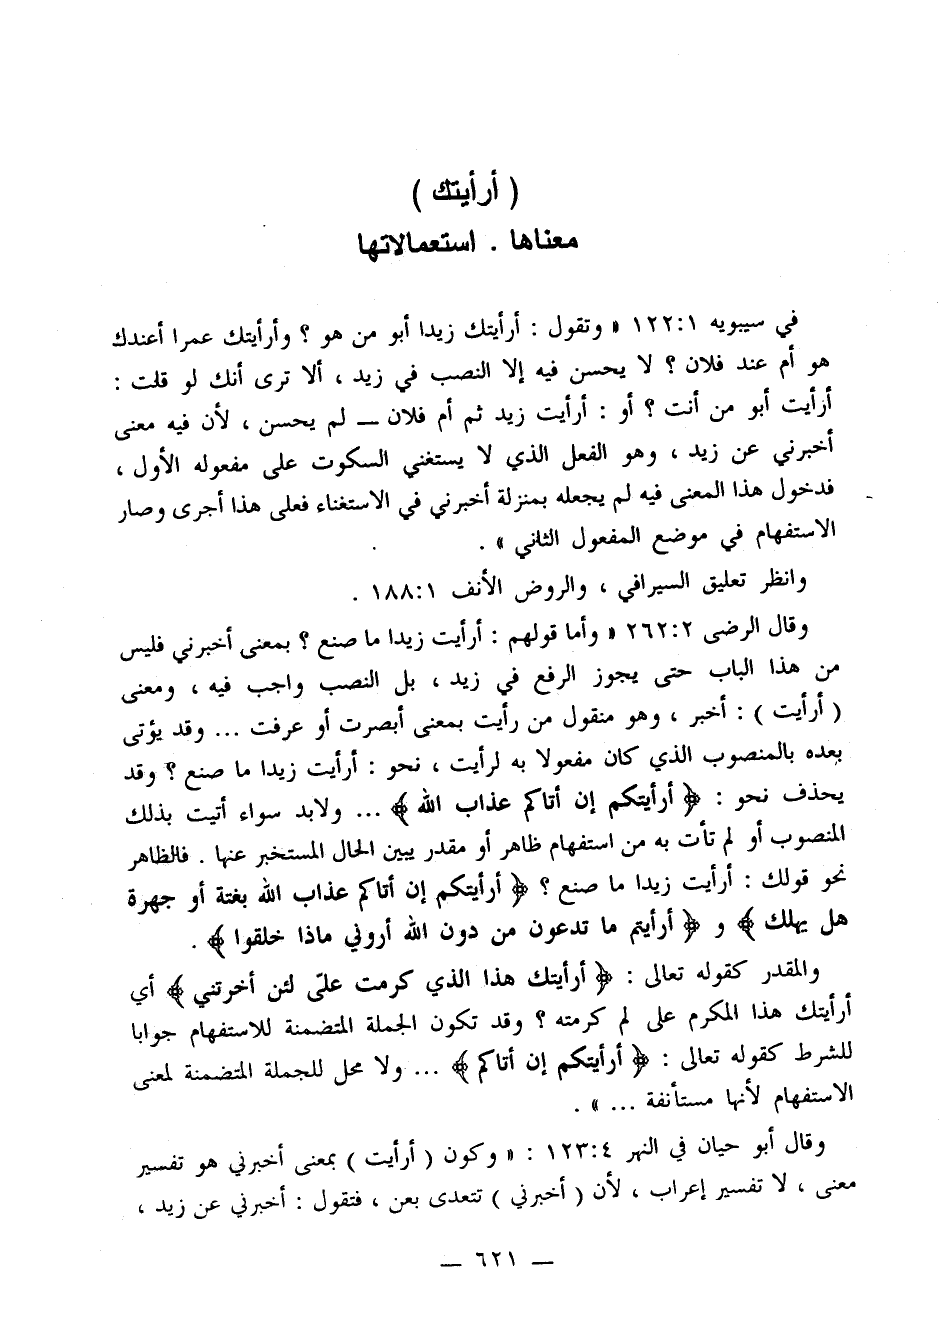 ( أرأيتك )
معناها . استعمالاتها
في سيبويه ١٢٢:١ « وتقول : أرأيتك زيدا أبو من هو ؟ وأرأيتك عمرا أعندك
هو أم عند فلان ؟ لا يحسن فيه إلا النصب في زيد ، ألا ترى أنك لو قلت :
أرأيت أبو من أنت ؟ أو : أرأيت زيد ثم أم فلان — لم يحسن ، لأن فيه معنى
أخبرني عن زيد ، وهو الفعل الذي لا يستغني السكوت على مفعوله الأول ،
فدخول هذا المعنى فيه لم يجعله بمنزلة أخبرني في الاستغناء فعلى هذا أجرى وصار
الاستفهام في موضع المفعول الثاني » .
وانظر تعليق السيرافي ، والروض الأنف ١٨٨:١ .
وقال الرضى ٢٦٢:٢ « وأما قولهم : أرأيت زيدا ما صنع ؟ بمعنى أخبرني فليس
من هذا الباب حتى يجوز الرفع في زيد ، بل النصب واجب فيه ، ومعنى
( أرأيت ) : أخبر ، وهو منقول من رأيت بمعنى أبصرت أو عرفت ... وقد يؤتى
بعده بالمنصوب الذي كان مفعولا به لرأيت ، نحو : أرأيت زيدا ما صنع ؟ وقد
يحذف نحو : ﴿ أرأيتكم إن أتاكم عذاب الله ﴾ ... ولابد سواء أتيت بذلك
المنصوب أو لم تأت به من استفهام ظاهر أو مقدر يبين الحال المستخبر عنها . فالظاهر
نحو قولك : أرأيت زيدا ما صنع ؟ ﴿ أرأيتكم إن أتاكم عذاب الله بغتة أو جهرة
هل يهلك ﴾ و ﴿ أرأيتم ما تدعون من دون الله أروني ماذا خلقوا ﴾ .
والمقدر كقوله تعالى : ﴿ أرأيتك هذا الذي كرمت علىّ لئن أخرتني ﴾ أي
أرأيتك هذا المكرم على لم كرمته ؟ وقد تكون الجملة المتضمنة للاستفهام جوابا
للشرط كقوله تعالى : ﴿ أرأيتكم إن أتاكم ﴾ ... ولا محل للجملة المتضمنة لمعنى
الاستفهام لأنها مستأنفة ... » .
وقال أبو حيان في النهر ١٢٣:٤ : « وكون ( أرأيت ) بمعنى أخبرني هو تفسير
معنى ، لا تفسير إعراب ، لأن ( أخبرني ) تتعدى بعن ، فتقول : أخبرني عن زيد ،
— ٦٢١ —